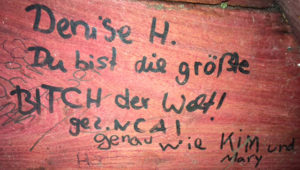 Denise H.
Du bist die größte
BITCH der Welt!
gez. NCA1
genau wie Kim und
Mary